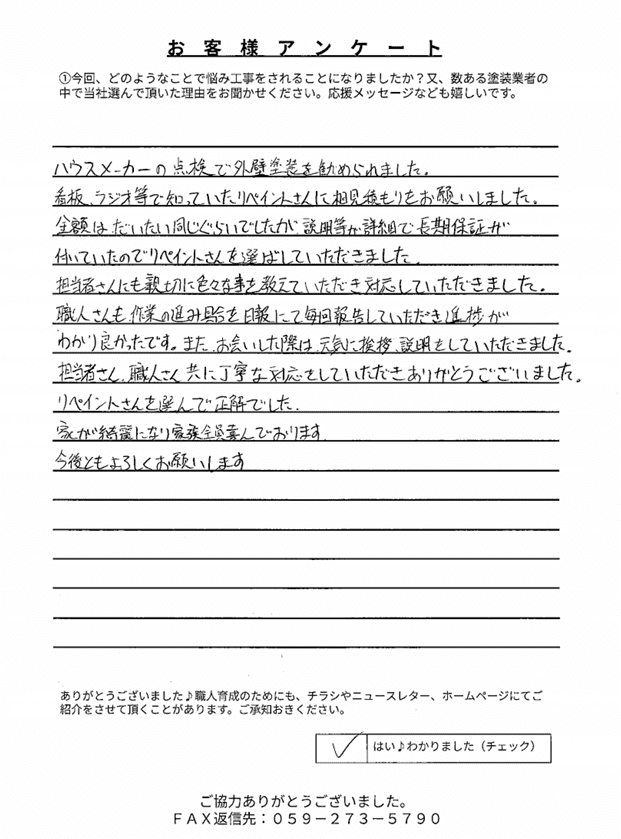 お客様アンケート
①今回、どのようなことで悩み工事をされることになりましたか？又、数ある塗装業者の
中で当社選んで頂いた理由をお聞かせください。応援メッセージなども嬉しいです。
ハウスメーカーの点検で外壁塗装を勧められました。
看板、ラジオ等で知っていたリペイントさんに相見積もりをお願いしました。
金額はだいたい同じぐらいでしたが説明等が詳細で長期保証が
付いていたのでリペイントさんを選ばしていただきました。
担当者さんにも親切に色々な事を教えていただき対応していただきました。
職人さんも作業の進み具合を日報にて毎回報告していただき進捗が
わかり良かったです。また、お会いした際は元気に挨拶、説明をしていただきました。
担当者さん、職人さん共に丁寧な対応をしていただきありがとうございました。
リペイントさんを選んで正解でした。
家が綺麗になり家族全員喜んでおります
今後ともよろしくお願いします
ありがとうございました♪職人育成のためにも、チラシやニュースレター、ホームページにてご
紹介をさせて頂くことがあります。ご承知おきください。
✓ はい♪わかりました（チェック）
ご協力ありがとうございました。
ＦＡＸ返信先：０５９－２７３－５７９０